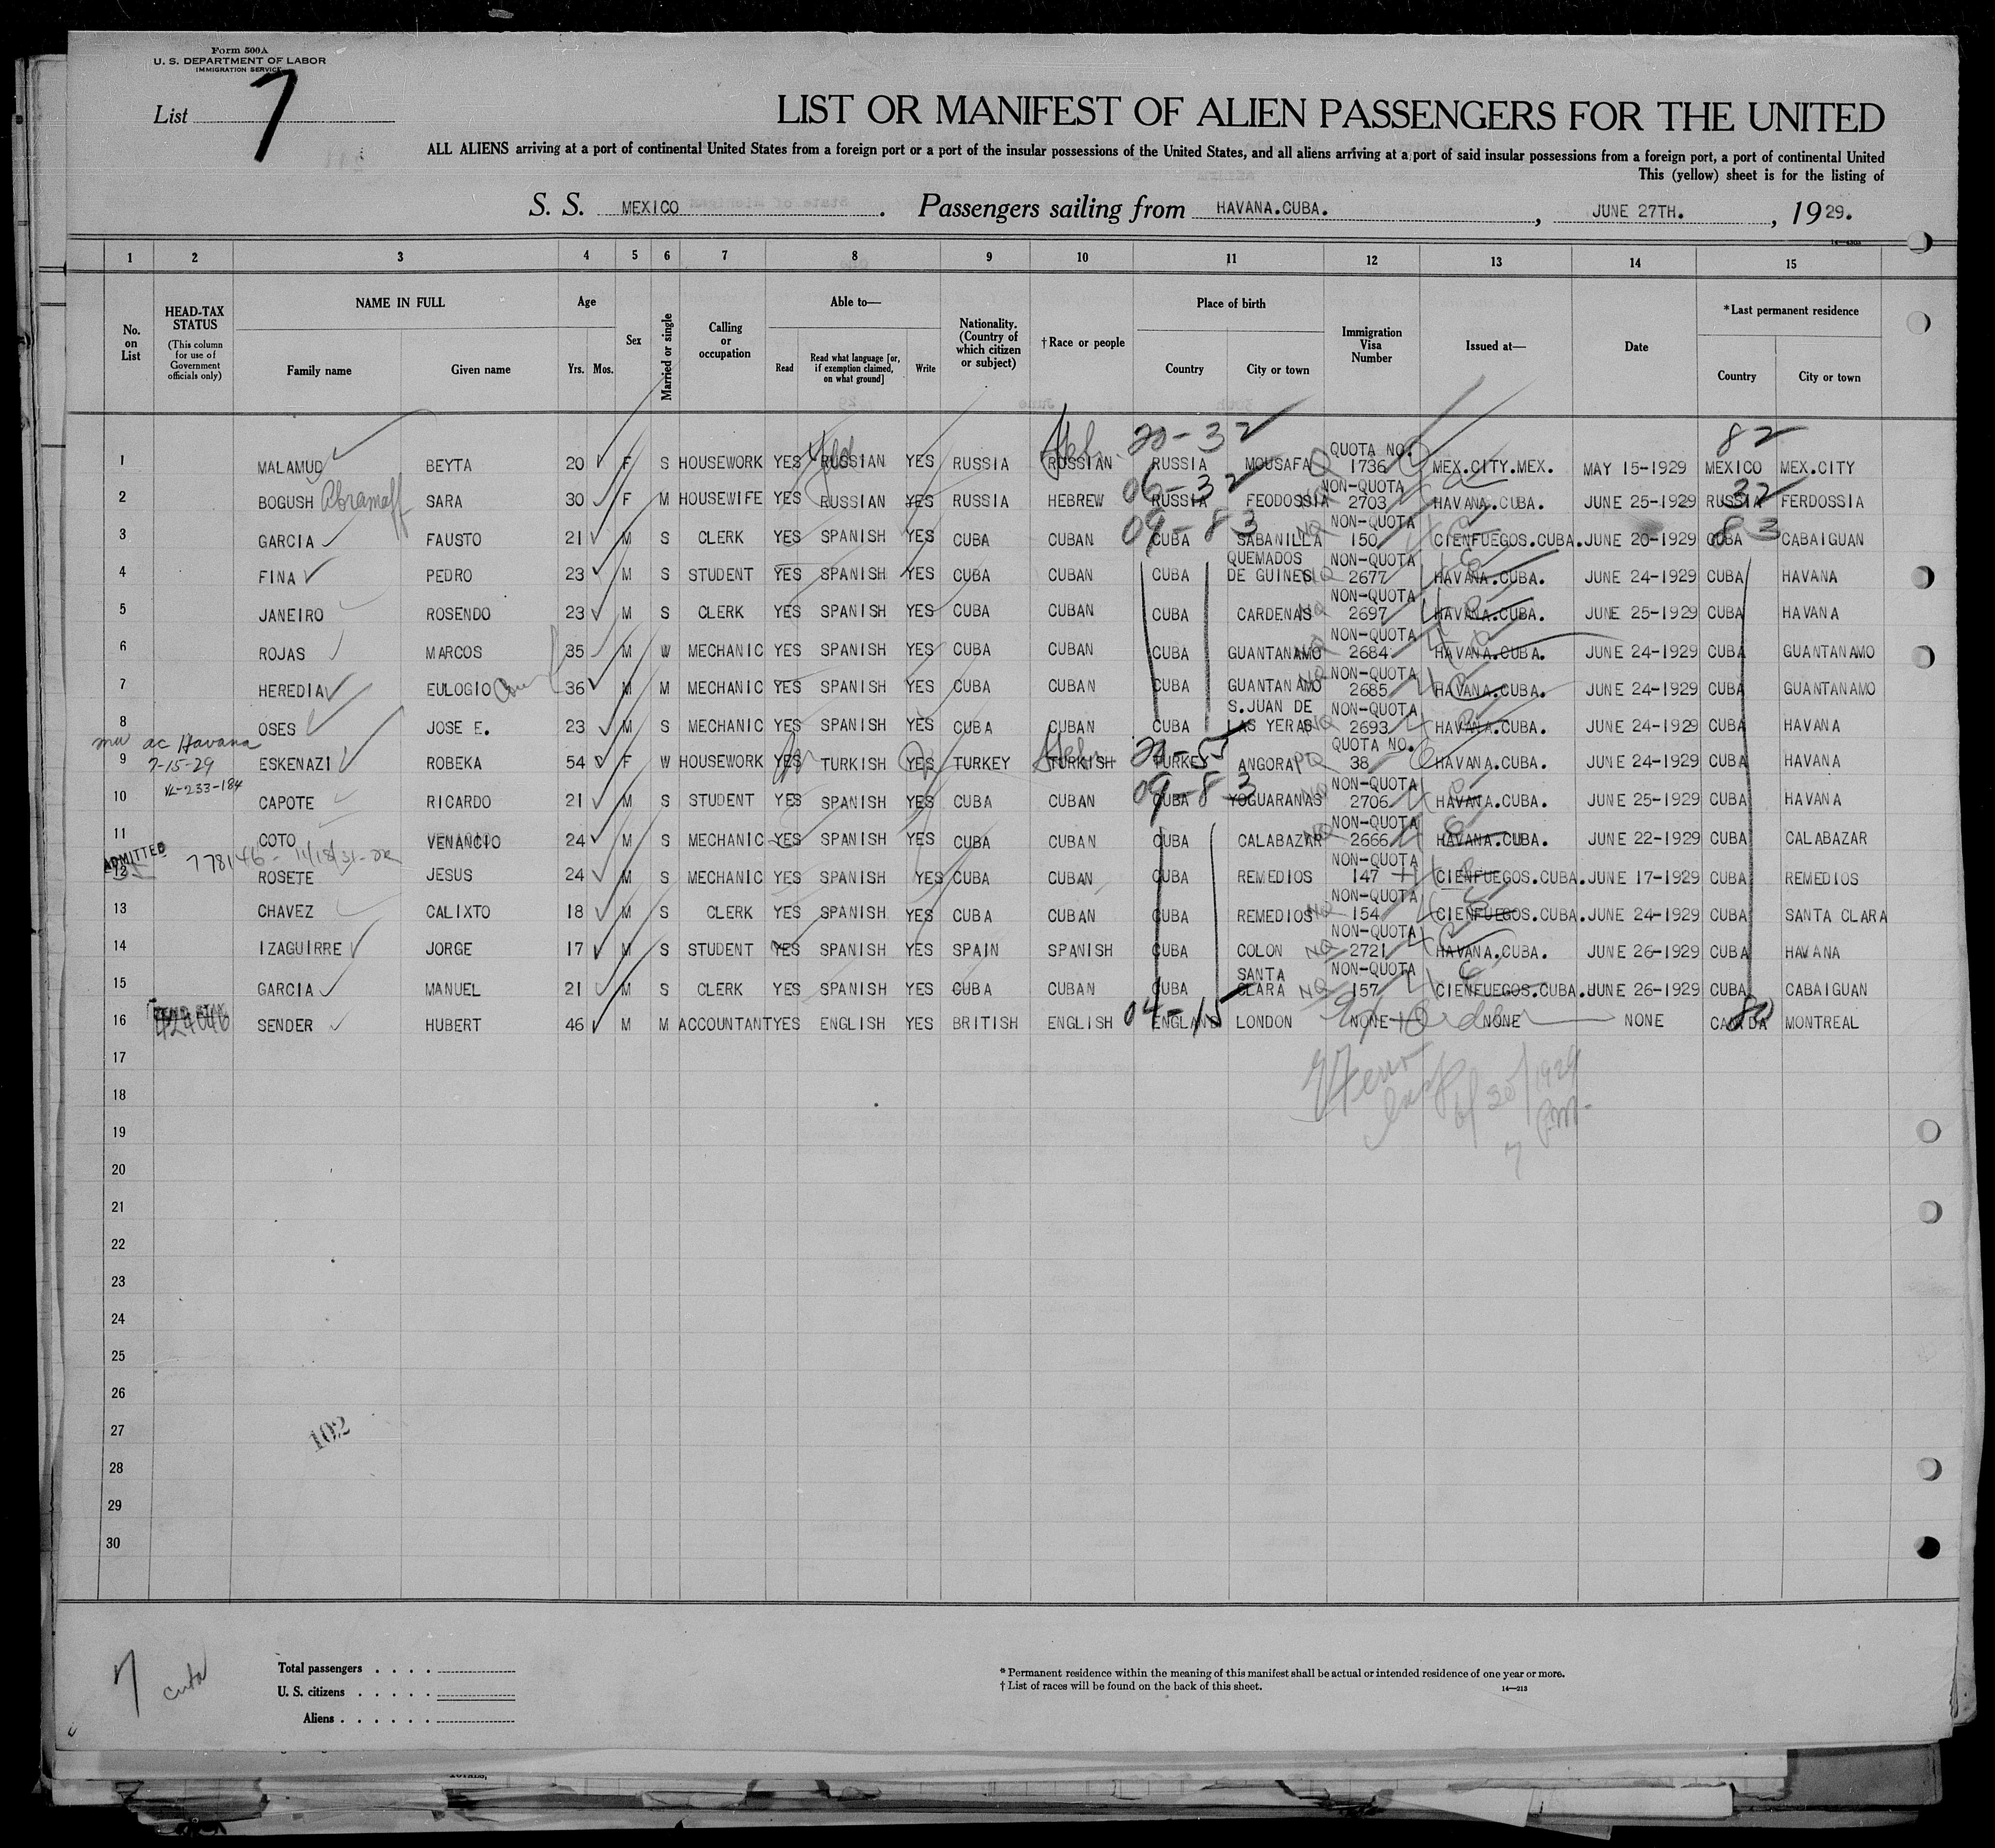 Form 500A
U. S. DEPARTMENT OF LABOR
IMMIGRATION SERVICE
List 7
LIST OR MANIFEST OF ALIEN PASSENGERS FOR THE UNITED
ALL ALIENS arriving at a port of continental United States from a foreign port or a port of the insular possessions of the United States, and all aliens arriving at a port of said insular possessions from a foreign port, a port of continental United
This (yellow) sheet is for the listing of
S. S. MEXICO . Passengers sailing from HAVANA.CUBA. , JUNE 27TH. , 1929.
1 2 3 4 5 6 7 8 9 10 11 12 13 14 15
No. on List
HEAD-TAX STATUS (This column for use of Government officials only)
NAME IN FULL Family name Given name
Age Yrs. Mos.
Sex
Married or single
Calling or occupation
Able to— Read Read what language [or, if exemption claimed, on what ground] Write
Nationality. (Country of which citizen or subject)
†Race or people
Place of birth Country City or town
Immigration Visa Number
Issued at—
Date
*Last permanent residence Country City or town
Hebr. 20-32 82
1 MALAMUD BEYTA 20 F S HOUSEWORK YES RUSSIAN YES RUSSIA RUSSIAN RUSSIA MOUSAFA QUOTA NO. 1736 MEX.CITY.MEX. MAY 15-1929 MEXICO MEX.CITY
06-32 32
2 BOGUSH Abramoff SARA 30 F M HOUSEWIFE YES RUSSIAN YES RUSSIA HEBREW RUSSIA FEODOSSIA NON-QUOTA 2703 HAVANA.CUBA. JUNE 25-1929 RUSSIA FERDOSSIA
09-83 83
3 GARCIA FAUSTO 21 M S CLERK YES SPANISH YES CUBA CUBAN CUBA SABANILLA NQ NON-QUOTA 150 CIENFUEGOS.CUBA. JUNE 20-1929 CUBA CABAIGUAN
4 FINA PEDRO 23 M S STUDENT YES SPANISH YES CUBA CUBAN CUBA QUEMADOS DE GUINES NQ NON-QUOTA 2677 HAVANA.CUBA. JUNE 24-1929 CUBA HAVANA
5 JANEIRO ROSENDO 23 M S CLERK YES SPANISH YES CUBA CUBAN CUBA CARDENAS NQ NON-QUOTA 2697 HAVANA.CUBA. JUNE 25-1929 CUBA HAVANA
6 ROJAS MARCOS 35 M W MECHANIC YES SPANISH YES CUBA CUBAN CUBA GUANTANAMO NQ NON-QUOTA 2684 HAVANA.CUBA. JUNE 24-1929 CUBA GUANTANAMO
7 HEREDIA EULOGIO 36 M M MECHANIC YES SPANISH YES CUBA CUBAN CUBA GUANTANAMO NQ NON-QUOTA 2685 HAVANA.CUBA. JUNE 24-1929 CUBA GUANTANAMO
8 OSES JOSE E. 23 M S MECHANIC YES SPANISH YES CUBA CUBAN CUBA S.JUAN DE LAS YERAS NQ NON-QUOTA 2693 HAVANA.CUBA. JUNE 24-1929 CUBA HAVANA
ac Havana
7-15-29
VL-233-184
Hebr. 20-55
9 ESKENAZI ROBEKA 54 F W HOUSEWORK YES TURKISH YES TURKEY TURKISH TURKEY ANGORA QUOTA NO. 38 HAVANA.CUBA. JUNE 24-1929 CUBA HAVANA
09-83
10 CAPOTE RICARDO 21 M S STUDENT YES SPANISH YES CUBA CUBAN CUBA YOGUARANAS NQ NON-QUOTA 2706 HAVANA.CUBA. JUNE 25-1929 CUBA HAVANA
11 COTO VENANCIO 24 M S MECHANIC YES SPANISH YES CUBA CUBAN CUBA CALABAZAR NQ NON-QUOTA 2666 HAVANA.CUBA. JUNE 22-1929 CUBA CALABAZAR
ADMITTED 778146 - 11/18/31
12 ROSETE JESUS 24 M S MECHANIC YES SPANISH YES CUBA CUBAN CUBA REMEDIOS NON-QUOTA 147 CIENFUEGOS.CUBA. JUNE 17-1929 CUBA REMEDIOS
13 CHAVEZ CALIXTO 18 M S CLERK YES SPANISH YES CUBA CUBAN CUBA REMEDIOS NQ NON-QUOTA 154 CIENFUEGOS.CUBA. JUNE 24-1929 CUBA SANTA CLARA
14 IZAGUIRRE JORGE 17 M S STUDENT YES SPANISH YES SPAIN SPANISH CUBA COLON NQ NON-QUOTA 2721 HAVANA.CUBA. JUNE 26-1929 CUBA HAVANA
15 GARCIA MANUEL 21 M S CLERK YES SPANISH YES CUBA CUBAN CUBA SANTA CLARA NQ NON-QUOTA 157 CIENFUEGOS.CUBA. JUNE 26-1929 CUBA CABAIGUAN
04-15 80
16 SENDER HUBERT 46 M M ACCOUNTANT YES ENGLISH YES BRITISH ENGLISH ENGLAND LONDON NONE NONE NONE CANADA MONTREAL
17
18
19
20
21
22
23
24
25
26
27
28
29
30
102
7 cuba
Total passengers
U. S. citizens
Aliens
* Permanent residence within the meaning of this manifest shall be actual or intended residence of one year or more.
† List of races will be found on the back of this sheet.
14—213